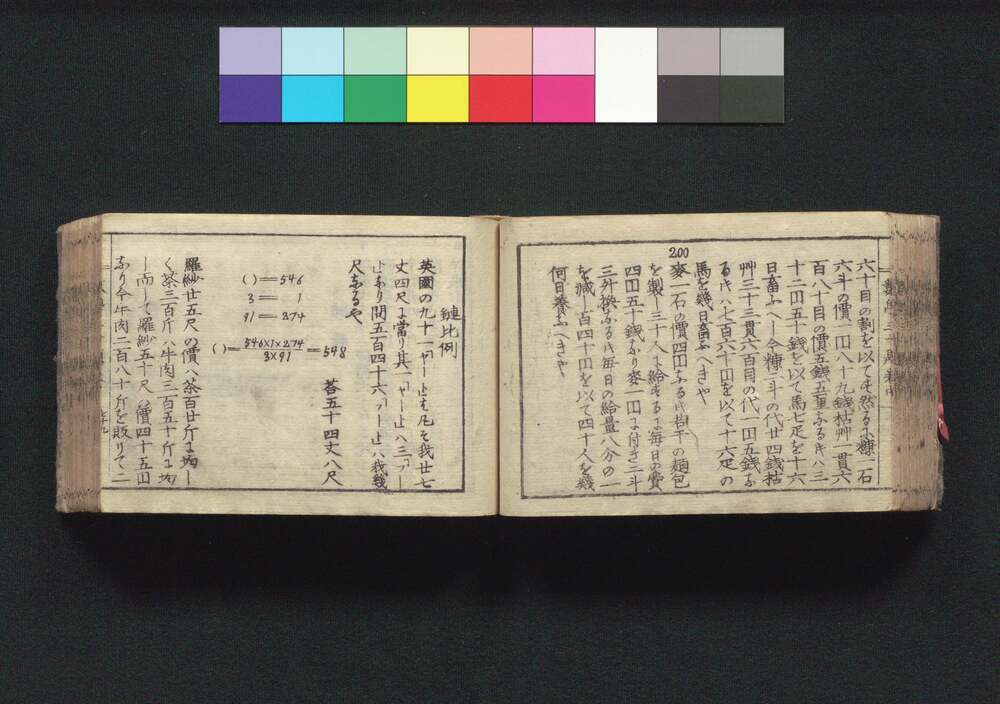 六十目の割を以てす然るに糠一石
六斗の價一円八十九銭枯艸一貫六
百八十目の價五銭五厘ふるハ三
十二円五十銭を以て馬七疋を十六
日畜ふへし今糠二斗の代廿四銭枯
艸三十三貫六百目の代一円五銭ふ
るハ七百六十円を以て十六疋の
馬を幾日畜ふへきや
200
麥一石の價四円ふる時若干の麺包
を製し三十人に給するに毎日の費
四円五十銭ふり麥一円に付き二斗
三升換ふる時毎日の給量八分の一
を減し百四十円を以て四十人を幾
何日養ふへきや
鏈比例
英國の九十一ヤード凡そ我廿七
丈四尺に當り其一ヤードハ三フー
トなり問五百四十六フートハ我幾
尺なるや
( )=546
3= 1
91=274
( )=546×1×274/3×91=548
荅五十四丈八尺
羅紗廿五尺の價ハ茶百廿斤に均し
く茶三百斤ハ牛肉三百五十斤に均
し而して羅紗五十尺の價四十五円
なり今牛肉二百八十斤を販りて二